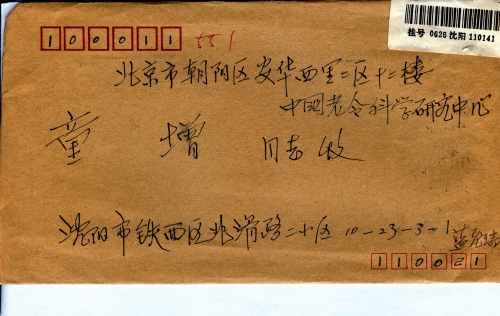 100011 551
挂号 0626 沈阳 110141
北京市朝阳区安华西里二区十二楼
中国老令科学研究中心
童增 同志收
沈阳市铁西区北滑路二小区 10-23-3-1
110021